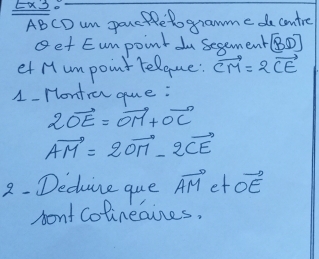 Ex3:
ABCD un parallélogramme de centre
O et E un point du Segement [BD]
et M un point telque: \overrightarrow{CM} = 2\overrightarrow{CE}
1 - Montrer que :
2\overrightarrow{OE} = \overrightarrow{OM} + \overrightarrow{OC}
\overrightarrow{AM} = 2\overrightarrow{OM} - 2\overrightarrow{CE}
2 - Déduire que \overrightarrow{AM} et \overrightarrow{OE}
sont Colinéaires.